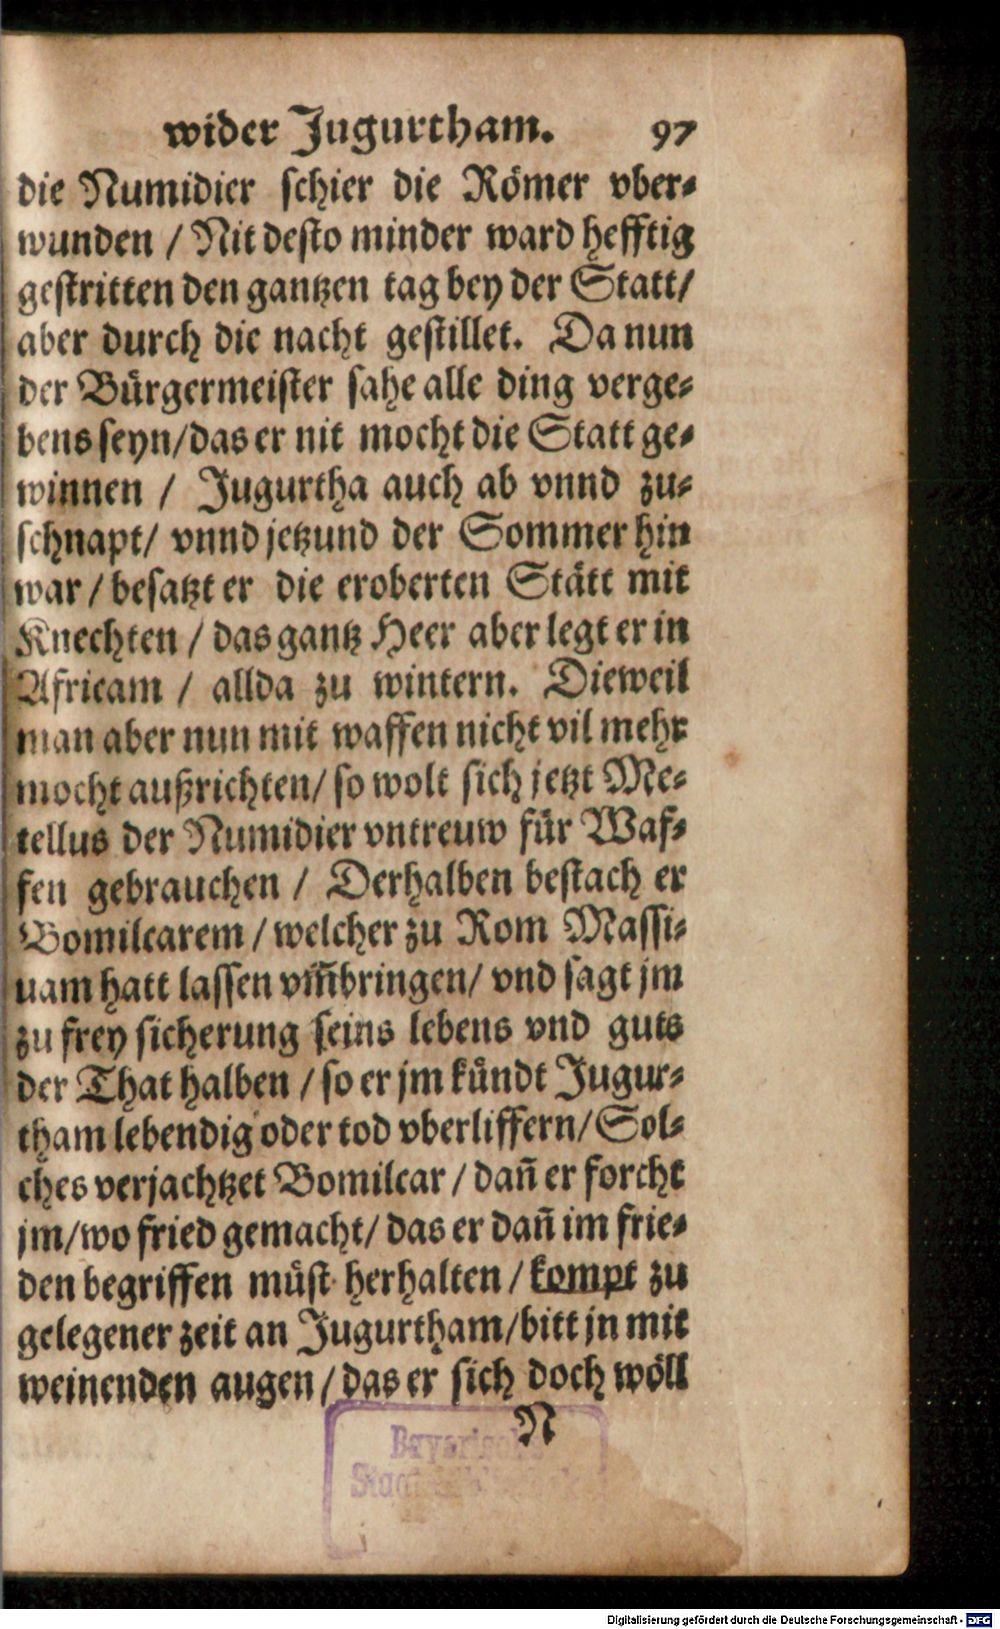 wider Jugurtham. 97
die Numidier schier die Römer vber⸗
wunden / Nit desto minder ward hefftig
gestritten den gantzen tag bey der Statt/
aber durch die nacht gestillet. Da nun
der Bürgermeister sahe alle ding verge⸗
bens seyn/das er nit mocht die Statt ge⸗
winnen / Jugurtha auch ab vnnd zu⸗
schnapt/ vnnd jetzund der Sommer hin
war / besatzt er die eroberten Stätt mit
Knechten / das gantz Heer aber legt er in
Africam / allda zu wintern. Dieweil
man aber nun mit waffen nicht vil mehr
mocht außrichten/ so wolt sich jetzt Me⸗
tellus der Numidier vntreuw für Waf⸗
fen gebrauchen / Derhalben bestach er
Bomilcarem / welcher zu Rom Massi⸗
uam hatt lassen vm̃bringen/ vnd sagt jm
zu frey sicherung seins lebens vnd guts
der That halben / so er jm kündt Jugur⸗
tham lebendig oder tod vberliffern/ Sol⸗
ches verjachtzet Bomilcar / dañ er forcht
jm/wo fried gemacht/ das er dañ im frie⸗
den begriffen müst herhalten / kompt zu
gelegener zeit an Jugurtham/bitt jn mit
weinenden augen / das er sich doch wöll
N
Bayerische
Digitalisierung gefördert durch die Deutsche Forschungsgemeinschaft - DFG